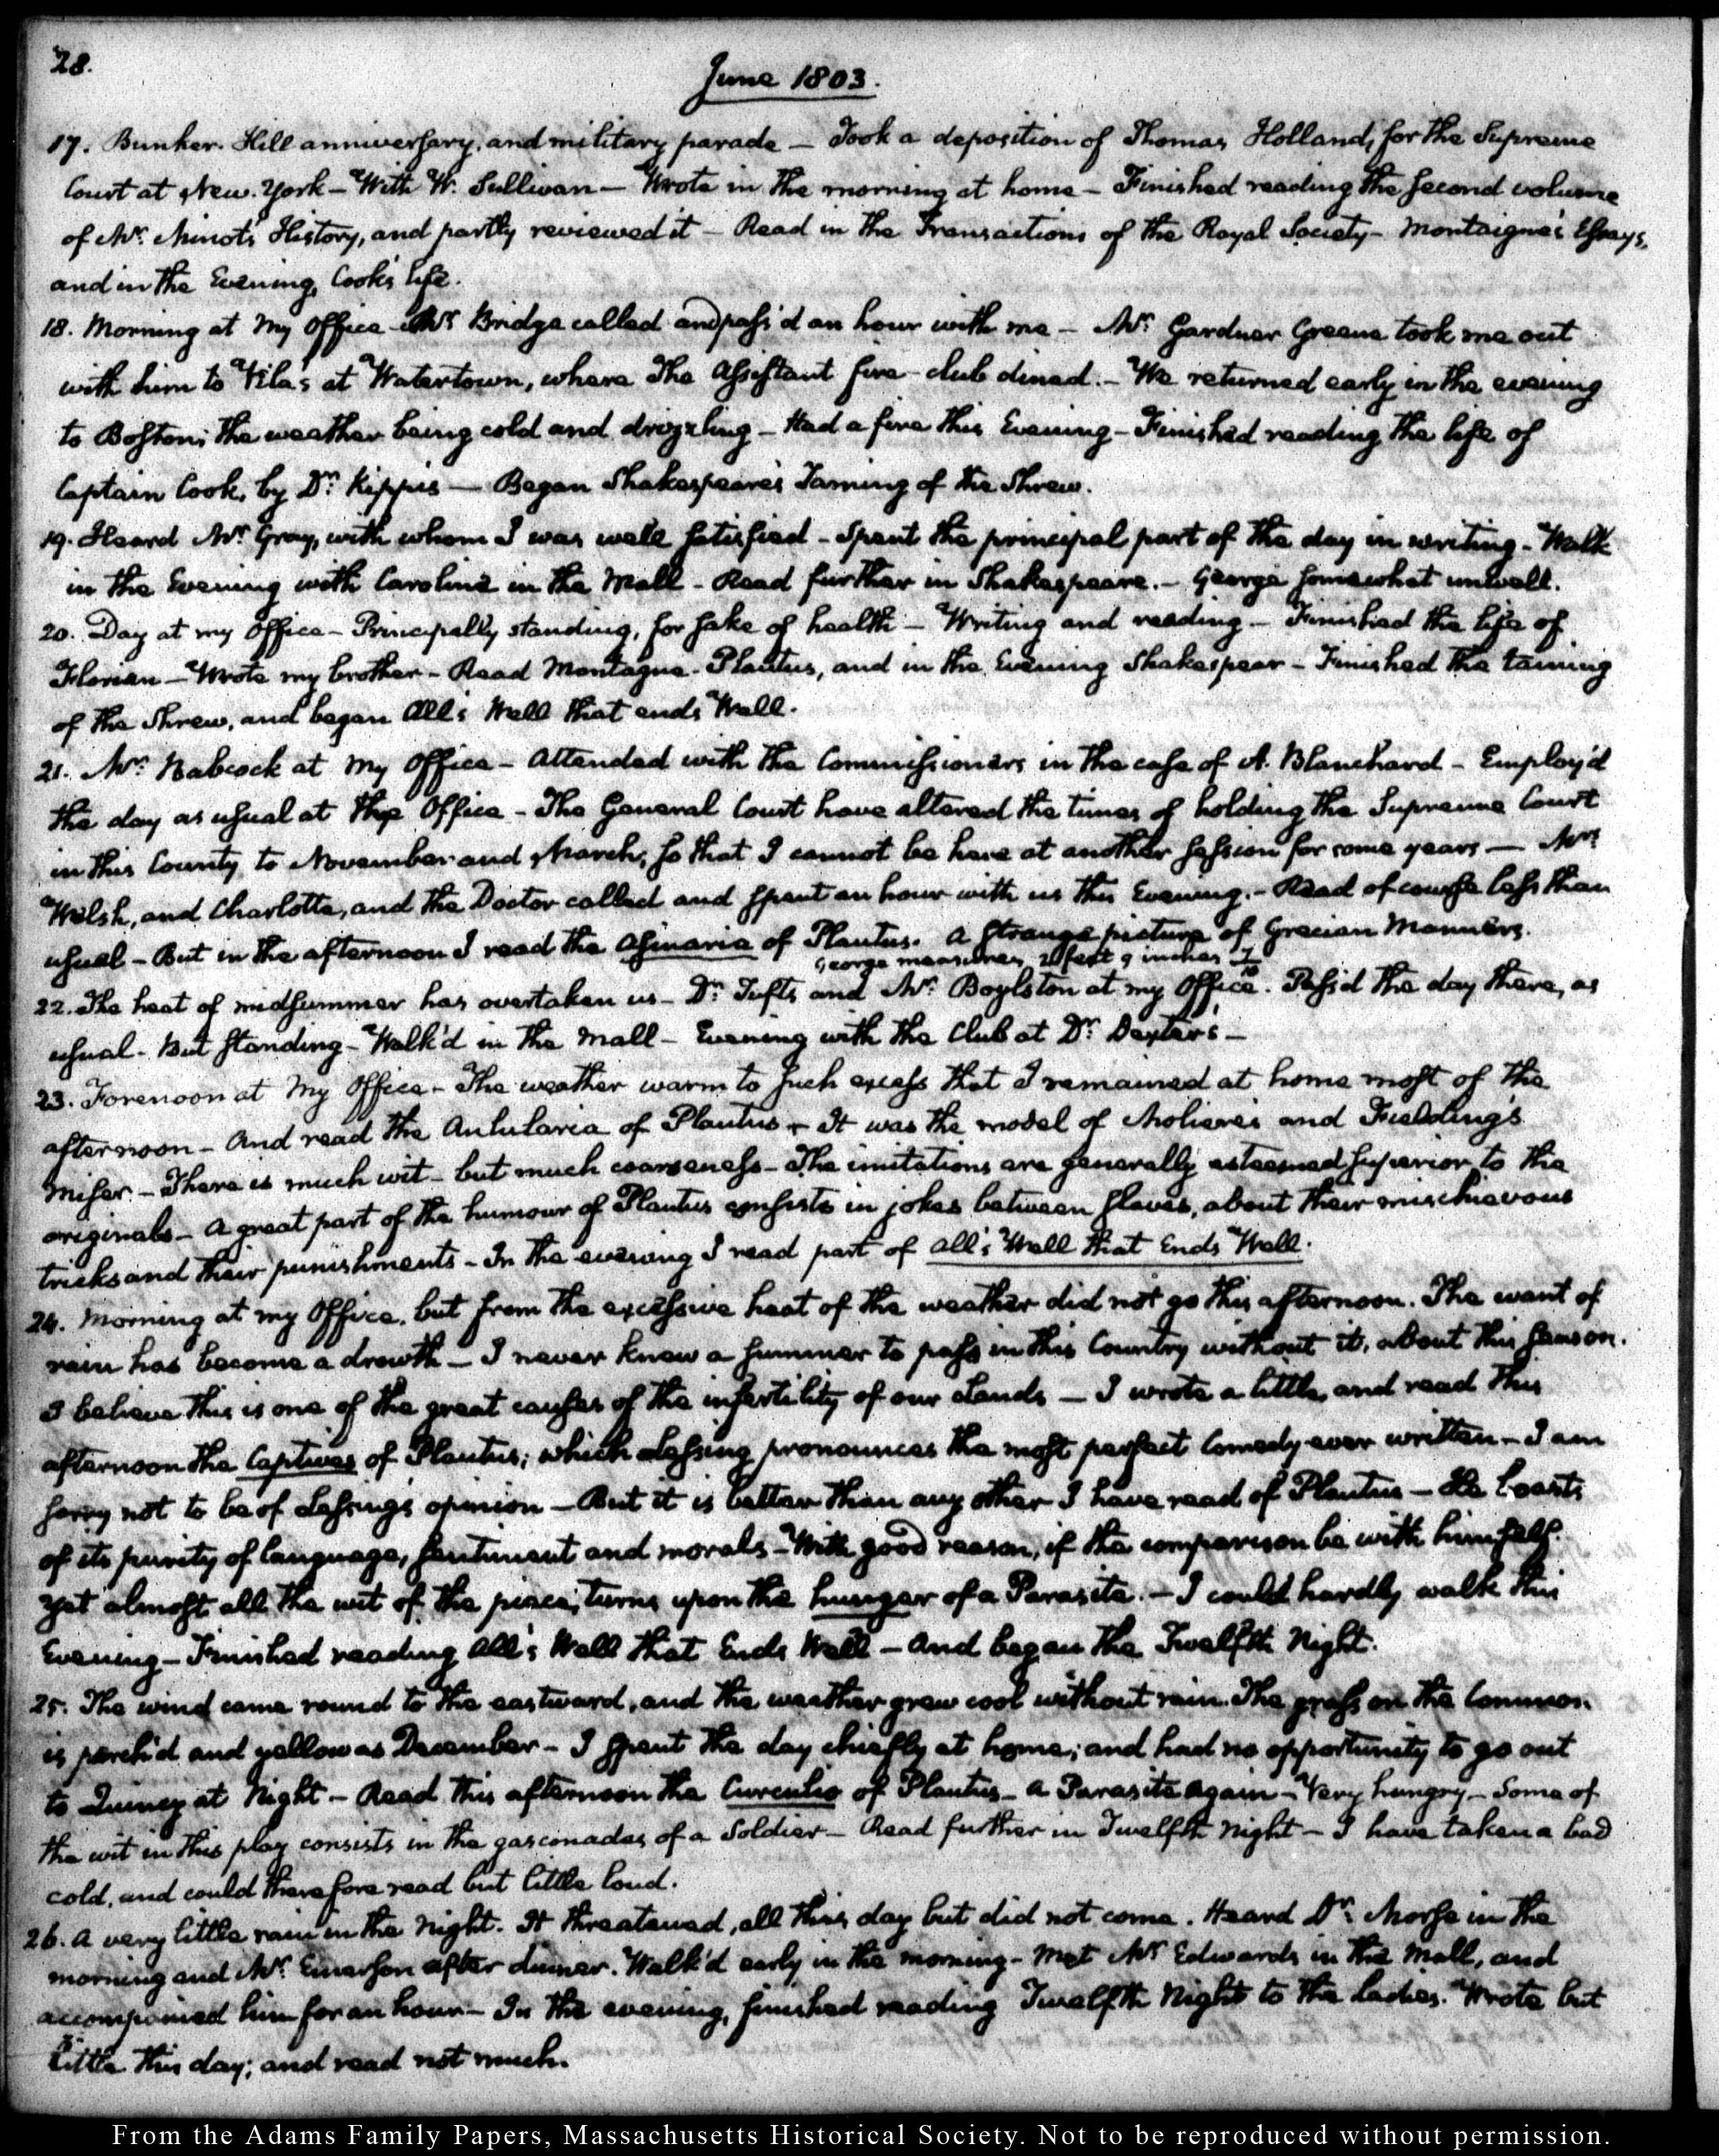 28.
June 1803.
17. Bunker. Hill anniversary, and military parade — Took a deposition of Thomas Holland, for the Supreme
Court at New. York — With W. Sullivan — Wrote in the morning at home — Finished reading the second volume
of Mr. Minot's History, and partly reviewed it — Read in the Transactions of the Royal Society — Montaigne's Essays,
and in the Evening, Cook's life.
18. Morning at my Office — Mr. Bridge called and pass'd an hour with me — Mr. Gardner Greene took me out
with him to Vila's at Watertown, where the Assistant fire-club dined. — We returned early in the evening
to Boston; the weather being cold and drizzling — Had a fire this Evening — Finished reading the life of
Captain Cook, by Dr. Kippis — Began Shakespeare's Taming of the Shrew.
19. Heard Mr. Gray, with whom I was well satisfied — Spent the principal part of the day in writing — Walk
in the Evening with Caroline in the Mall — Read further in Shakespeare. — George somewhat unwell.
20. Day at my Office — Principally standing, for sake of health — Writing and reading — Finished the life of
Florian — Wrote my brother — Read Montagne — Plautus, and in the Evening Shakespear — Finished the taming
of the Shrew, and began All's Well that ends Well.
21. Mr. Babcock at my Office — Attended with the Commissioners in the case of A. Blanchard — Employ'd
the day as usual at the Office — The General Court have altered the times of holding the Supreme Court
in this County to November and March; so that I cannot be here at another session for some years — Mrs.
Welsh, and Charlotte, and the Doctor called and spent an hour with us this Evening. — Read of course less than
usual — But in the afternoon I read the Asinaria of Plautus. A strange picture of Grecian Manners.
George measures, 2 feet 9 inches
22. The heat of midsummer has overtaken us — Dr. Tufts and Mr. Boylston at my Office. Pass'd the day there, as
usual. But standing — Walk'd in the Mall — Evening with the Club at Dr. Dexter's —
23. Forenoon at my Office — The weather warm to such excess that I remained at home most of the
afternoon — And read the Aulularia of Plautus — It was the model of Moliere's and Fielding's
Miser — There is much wit — but much coarseness — The imitations are generally esteemed superior to the
originals — A great part of the humour of Plautus consists in jokes between slaves, about their mischievous
tricks and their punishments — In the evening I read part of All's Well that Ends Well.
24. Morning at my Office, but from the excessive heat of the weather did not go this afternoon. The want of
rain has become a drowth — I never knew a summer to pass in this Country without it, about this season.
I believe this is one of the great causes of the infertility of our Lands — I wrote a little, and read this
afternoon the Captives of Plautus; which Lessing pronounces the most perfect Comedy ever written — I am
sorry not to be of Lessing's opinion — But it is better than any other I have read of Plautus — He boasts
of its purity of language, sentiment and morals — With good reason, if the comparison be with himself.
Yet almost all the wit of the piece, turns upon the hunger of a Parasite. — I could hardly walk this
Evening — Finished reading All's Well that Ends Well — And began the Twelfth Night.
25. The wind came round to the eastward, and the weather grew cool without rain. The grass on the Common
is parch'd and yellow as December — I spent the day chiefly at home; and had no opportunity to go out
to Quincy at Night — Read this afternoon the Curculio of Plautus — A Parasite again — Very hungry — Some of
the wit in this play consists in the gasconades of a Soldier — Read further in Twelfth Night — I have taken a bad
cold, and could therefore read but little loud.
26. A very little rain in the Night. It threatened, all this day but did not come. Heard Dr. Morse in the
morning and Mr. Emerson after dinner. Walk'd early in the morning — Met Mr. Edwards in the Mall, and
accompanied him for an hour — In the evening, finished reading Twelfth Night to the Ladies. Wrote but
little this day; and read not much.
From the Adams Family Papers, Massachusetts Historical Society. Not to be reproduced without permission.